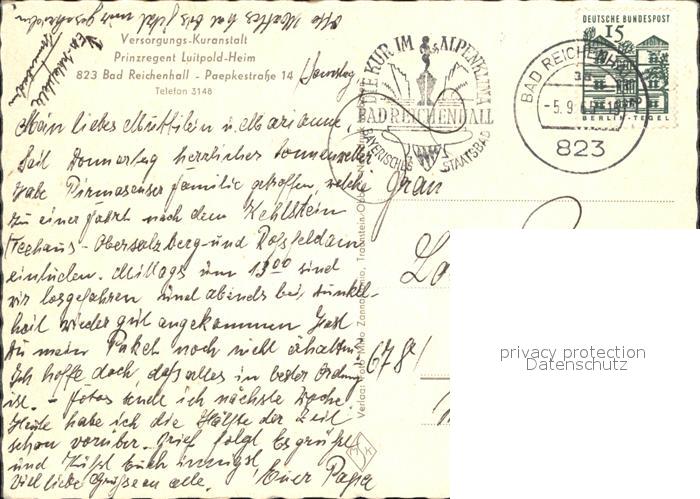 Versorgungs-Kuranstalt
Prinzregent Luitpold-Heim
823 Bad Reichenhall - Paepkestraße 14
Telefon 3148
Samstag
Mein liebes Muttilein u. Marianne,
Seit Donnerstag herrliches Sonnenwetter
habe Pirmasenser Familie getroffen, welche
zu einer Fahrt nach dem Kehlstein
Teehaus - Obersalzberg und Roßfeld
einluden. Mittags um 13⁰⁰ sind
wir losgefahren und abends bei Dunkel-
heit wieder gut angekommen. Hast
Du mein Paket noch nicht erhalten.
Ich hoffe doch, daß alles in bester Ordnung
ist. - Fotos sende ich nächste Woche
Heute habe ich die Hälfte der Zeit
schon vorüber. Brief folgt Es grüßt
und küßt Euch innigst,
Viel liebe Grüße an alle. Euer Papa
DIE KUR IM ALPENKLIMA
BAD REICHENHALL
BAYERISCHES STAATSBAD
DEUTSCHE BUNDESPOST
15
BERLIN-TEGEL
BAD REICHENHALL
-5.9.
823
678
privacy protection
Datenschutz